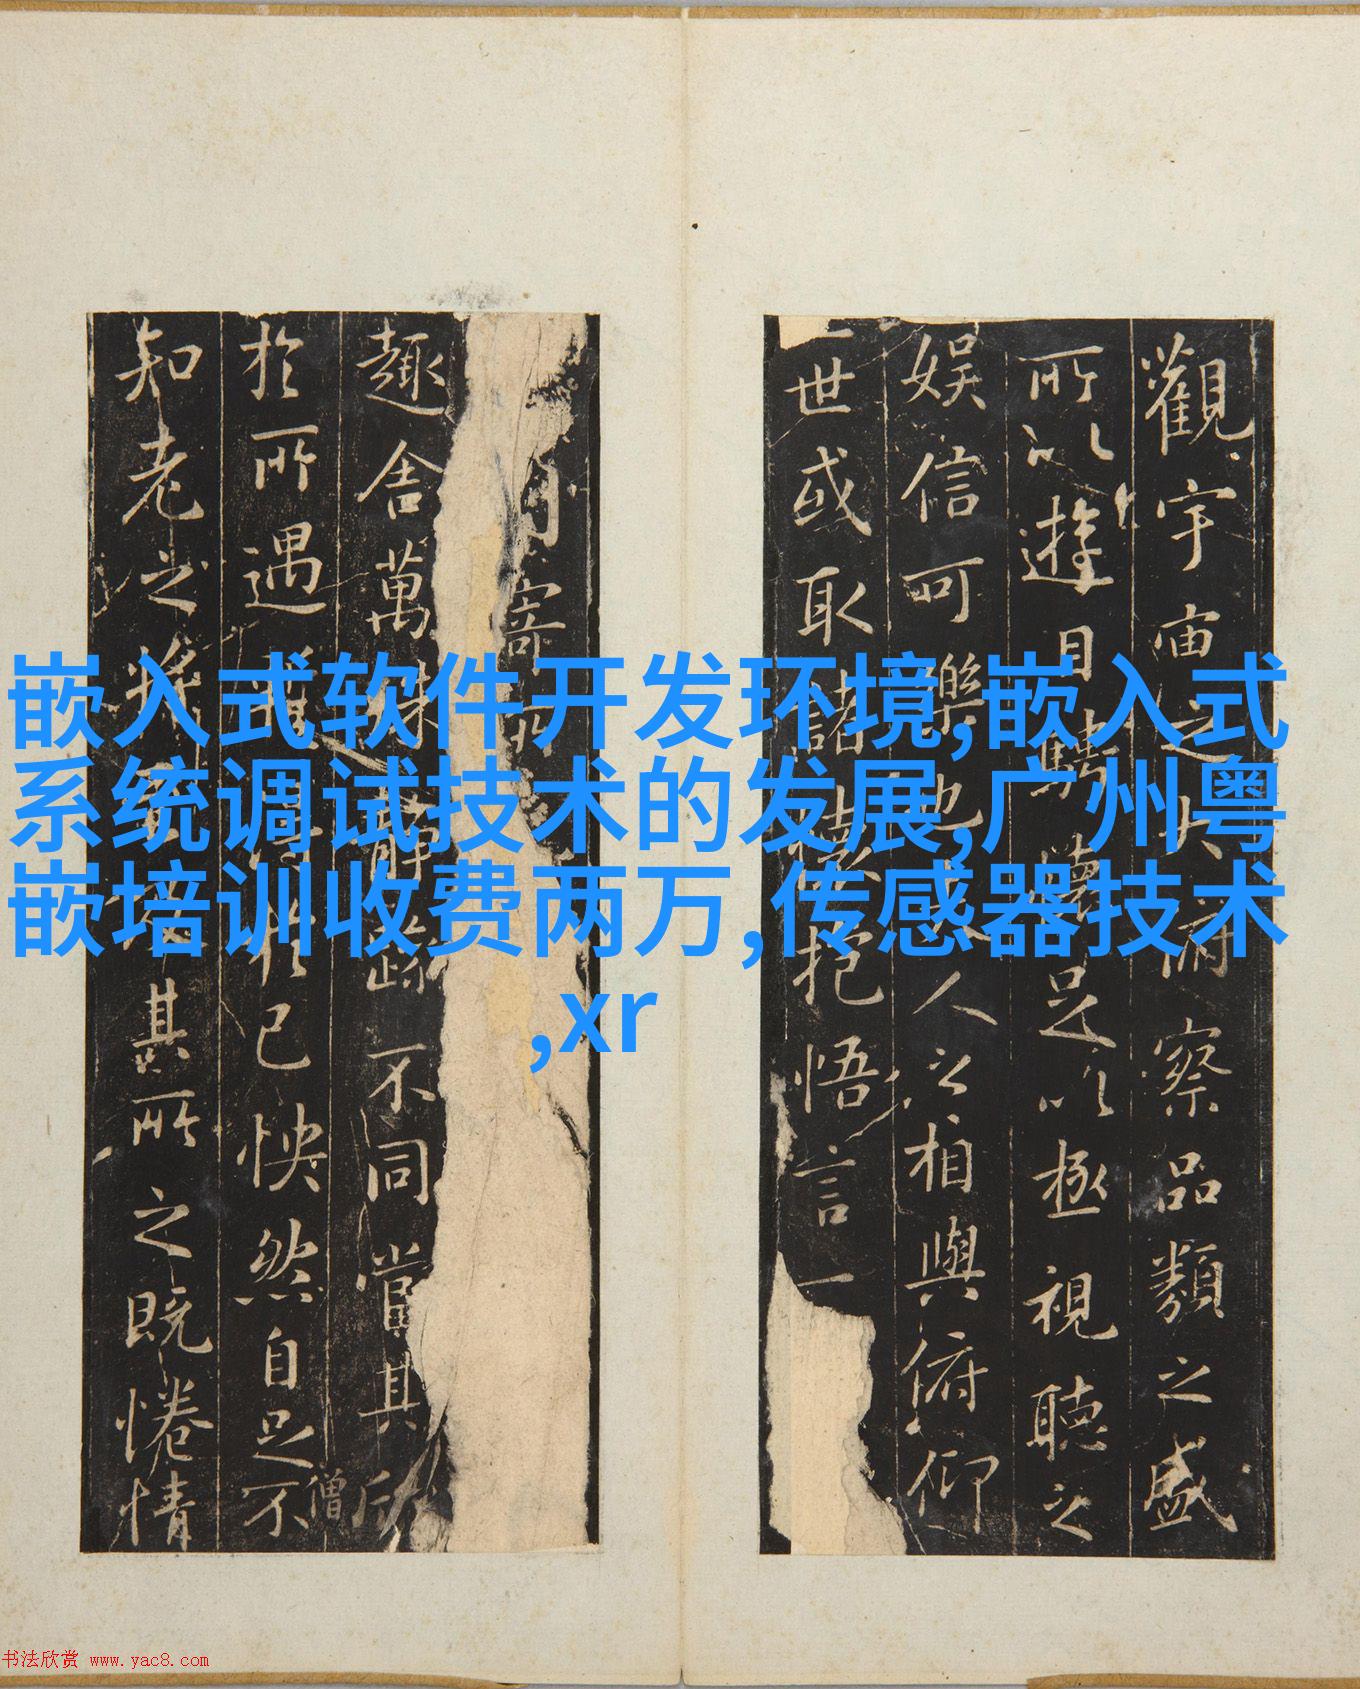 嵌入式软件开发环境,嵌入式
系统调试技术的发展,广州粤
嵌培训收费两万,传感器技术
,xr
觀宇宙之大俯察品類之盛
所以遊目騁懷足以極視聽之
娛信可樂也夫人之相與俯仰
一世或取諸懷抱悟言一
寄所
趣舍萬殊靜躁不同當其欣
僧
於所遇得於己怏然自足不
知老之將至及其所之既惓情
书法欣赏 www.yac8.com